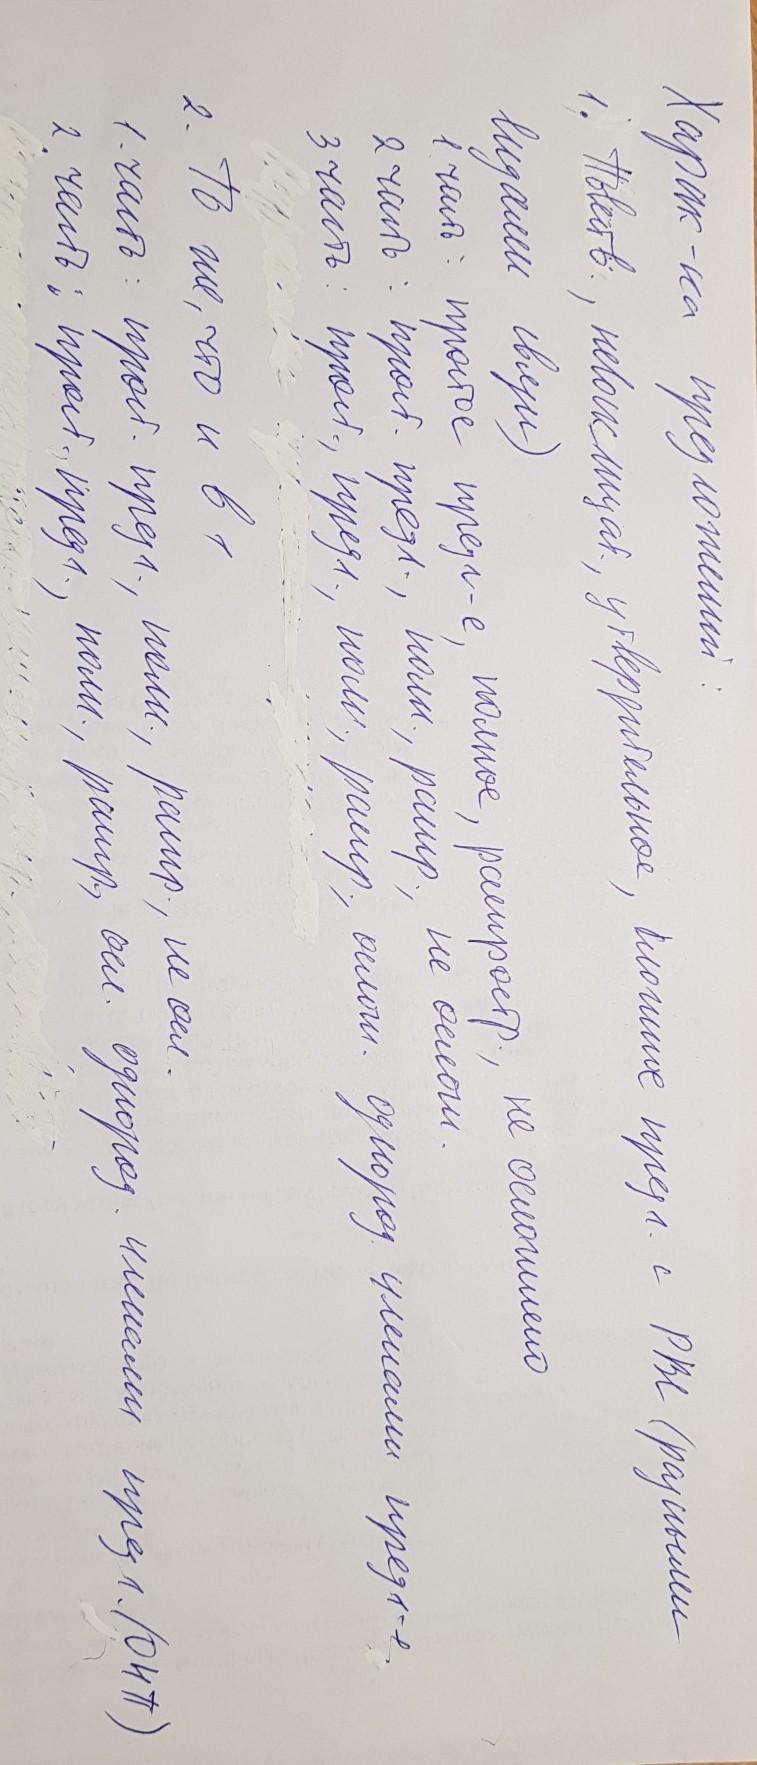 Харак-ка предложений:
1. Повеств., невосклицат., утвердительное, сложное предл. с РВС (разными
видами связи)
1 часть: простое предл-е, полное, распростр., не осложнено
2 часть: прост. предл., полн., распр., не ослож.
3 часть: прост., предл., полн., распр., ослож. однород. членами предл-е.
2. То же, что и в 1
1. часть: прост. предл., полн., распр., не осл.
2. часть: прост., предл., полн., распр., осл. однород. членами предл. (ОЧП)